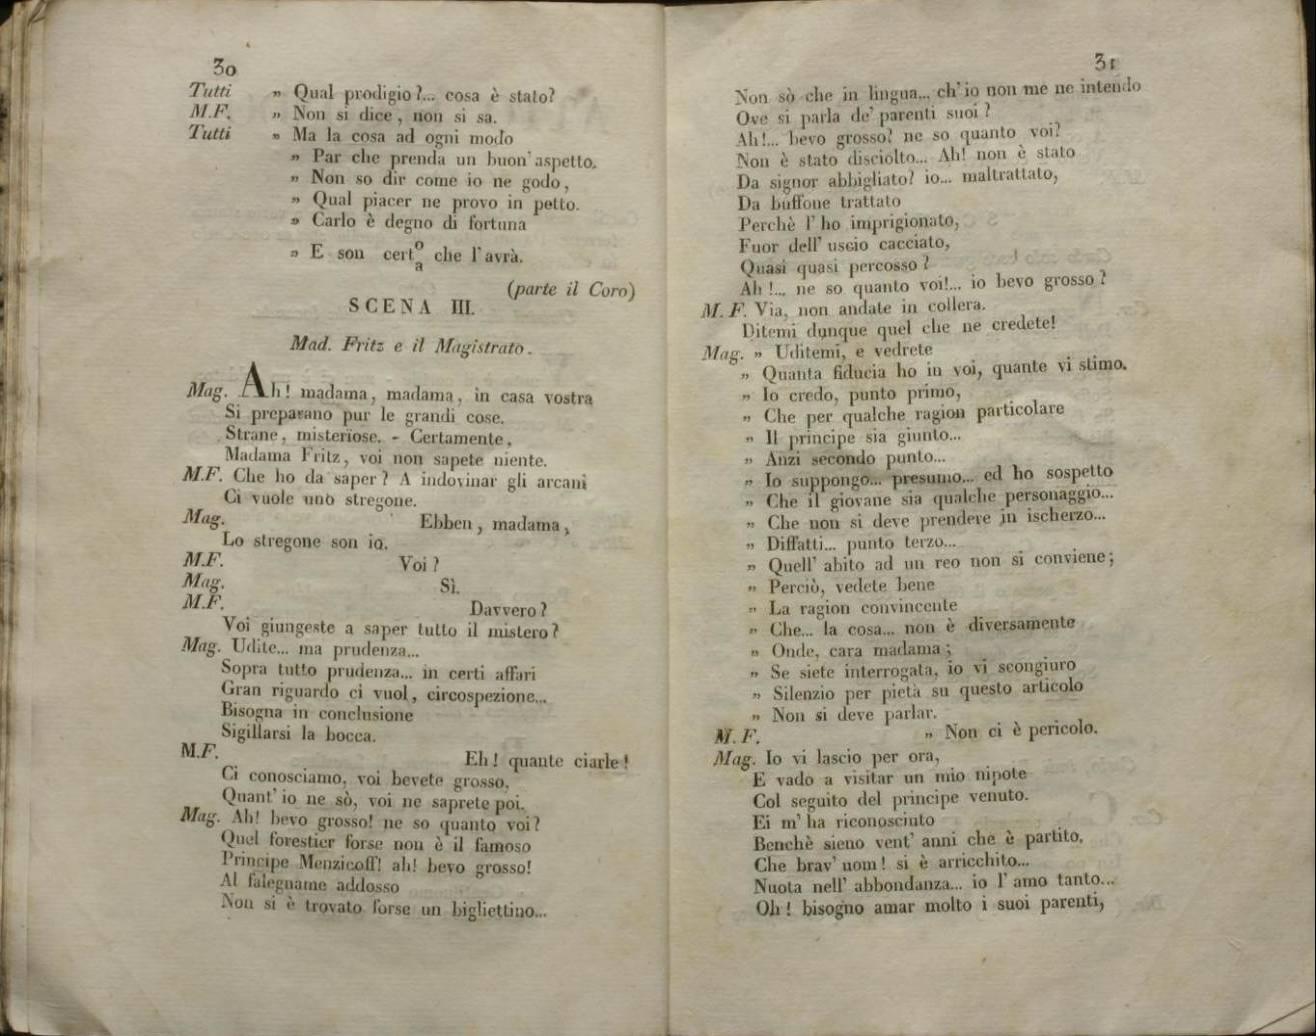 30
Tutti „ Qual prodigio?... cosa è stato?
M.F. „ Non si dice, non si sa.
Tutti „ Ma la cosa ad ogni modo
„ Par che prenda un buon' aspetto.
„ Non so dir come io ne godo,
„ Qual piacer ne provo in petto.
„ Carlo è degno di fortuna
„ E son cert o/a che l'avrà.
(parte il Coro)
SCENA III.
Mad. Fritz e il Magistrato.
Mag. Ah! madama, madama, in casa vostra
Si preparano pur le grandi cose.
Strane, misteriose. - Certamente,
Madama Fritz, voi non sapete niente.
M.F. Che ho da saper? A indovinar gli arcani
Ci vuole uno stregone.
Mag. Ebben, madama,
Lo stregone son io.
M.F. Voi?
Mag. Sì.
M.F. Davvero?
Voi giungeste a saper tutto il mistero?
Mag. Udite... ma prudenza...
Sopra tutto prudenza... in certi affari
Gran riguardo ci vuol, circospezione...
Bisogna in conclusione
Sigillarsi la bocca.
M.F. Eh! quante ciarle!
Ci conosciamo, voi bevete grosso,
Quant' io ne sò, voi ne saprete poi.
Mag. Ah! bevo grosso! ne so quanto voi?
Quel forestier forse non è il famoso
Principe Menzicoff! ah! bevo grosso!
Al falegname addosso
Non si è trovato forse un bigliettino...
31
Non sò che in lingua... ch'io non me ne intendo
Ove si parla de' parenti suoi?
Ah!... bevo grosso? ne so quanto voi?
Non è stato disciolto... Ah! non è stato
Da signor abbigliato? io... maltrattato,
Da buffone trattato
Perchè l' ho imprigionato,
Fuor dell' uscio cacciato,
Quasi quasi percosso?
Ah!... ne so quanto voi!... io bevo grosso?
M. F. Via, non andate in collera.
Ditemi dunque quel che ne credete!
Mag. „ Uditemi, e vedrete
„ Quanta fiducia ho in voi, quante vi stimo.
„ Io credo, punto primo,
„ Che per qualche ragion particolare
„ Il principe sia giunto...
„ Anzi secondo punto...
„ Io suppongo... presumo... ed ho sospetto
„ Che il giovane sia qualche personaggio...
„ Che non si deve prendere in ischerzo...
„ Diffatti... punto terzo...
„ Quell' abito ad un reo non si conviene;
„ Perciò, vedete bene
„ La ragion convincente
„ Che... la cosa... non è diversamente
„ Onde, cara madama;
„ Se siete interrogata, io vi scongiuro
„ Silenzio per pietà su questo articolo
„ Non si deve parlar.
M. F. „ Non ci è pericolo.
Mag. Io vi lascio per ora,
E vado a visitar un mio nipote
Col seguito del principe venuto.
Ei m' ha riconosciuto
Benchè sieno vent' anni che è partito.
Che brav' uom! si è arricchito...
Nuota nell' abbondanza... io l' amo tanto...
Oh! bisogno amar molto i suoi parenti,